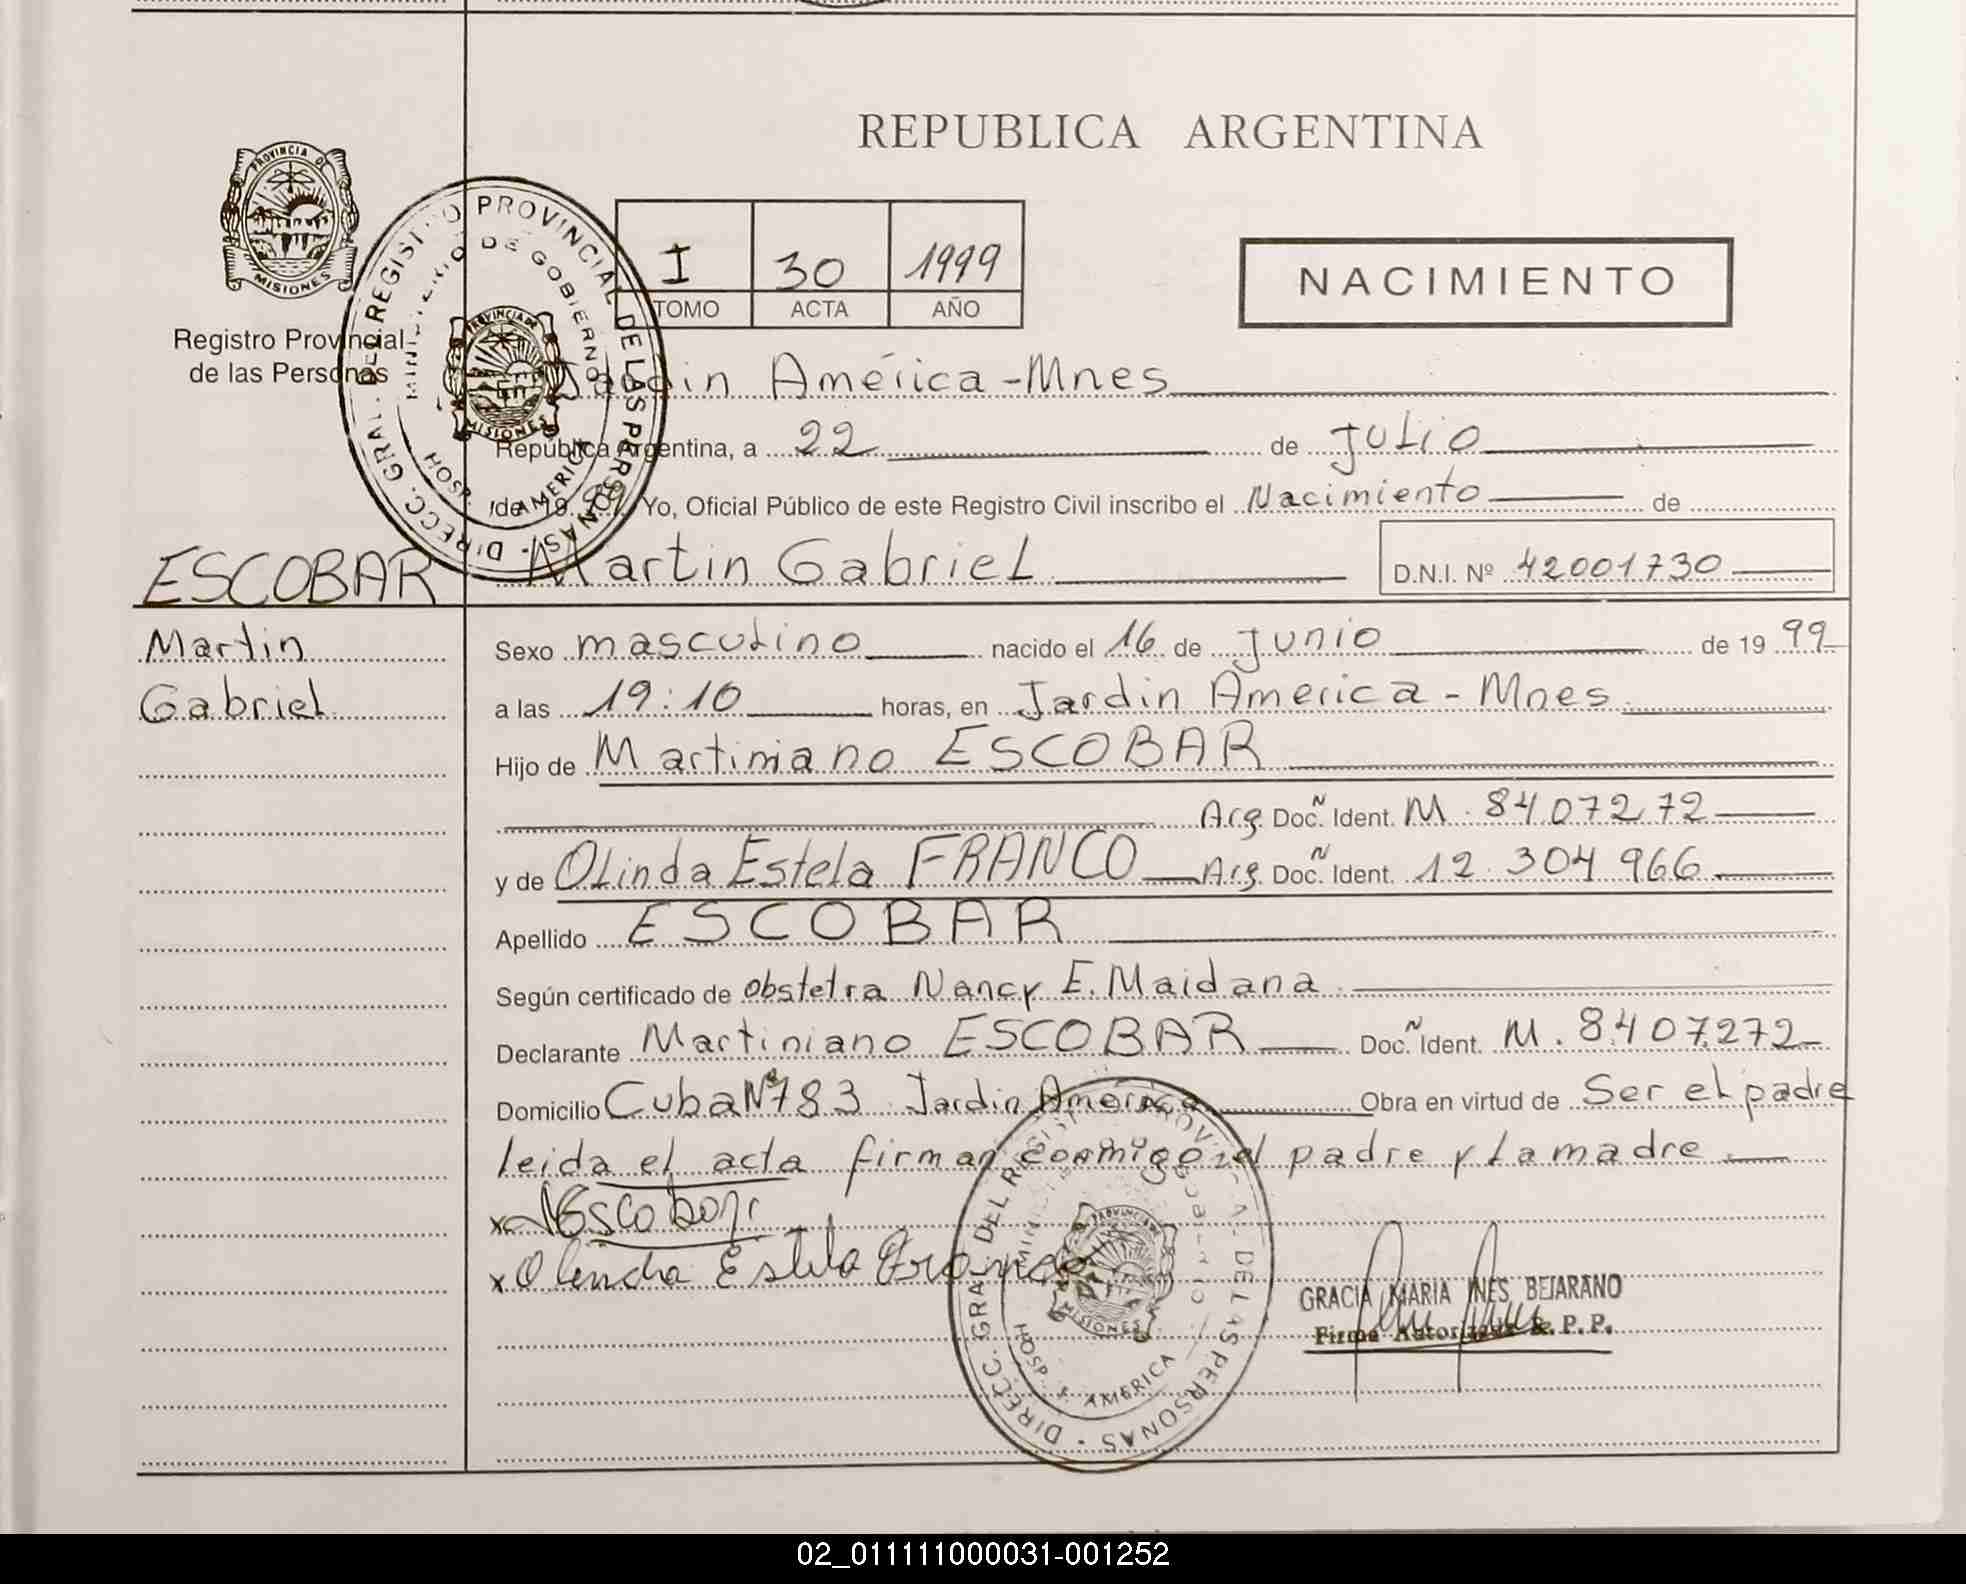 REPUBLICA ARGENTINA
PROVINCIA DE
MISIONES
Registro Provincial
de las Personas
DIRECC. GRAL. DEL REGISTRO PROVINCIAL DE LAS PERSONAS
MINISTERIO DE GOBIERNO
PROVINCIA DE
MISIONES
HOSP. J. AMERICA
I 30 1999
TOMO ACTA AÑO
NACIMIENTO
En Jardin América - Mnes
República Argentina, a 22 de Julio
de 19 99 Yo, Oficial Público de este Registro Civil inscribo el Nacimiento de
ESCOBAR Martin Gabriel D.N.I. Nº 42001730
Martin
Gabriel
Sexo masculino nacido el 16 de Junio de 19 99
a las 19:10 horas, en Jardin America - Mnes
Hijo de Martiniano ESCOBAR
Arg. Doc. N Ident. M. 8407272
y de Olinda Estela FRANCO Arg. Doc. N Ident. 12.304.966
Apellido ESCOBAR
Según certificado de obstetra Nancy E. Maidana
Declarante Martiniano ESCOBAR Doc. N Ident. M. 8.407.272
Domicilio Cuba Nº 783 Jardin América Obra en virtud de Ser el padre
leida el acta firman conmigo el padre y la madre
x Escobar
x Olinda Estela Franco
DIRECC. GRAL. DEL REGISTRO PROVINCIAL DE LAS PERSONAS
MINISTERIO DE GOBIERNO
PROVINCIA DE
MISIONES
HOSP. J. AMERICA
GRACIA MARIA INES BEJARANO
Firma Autorizada R. P. P.
02_011111000031-001252